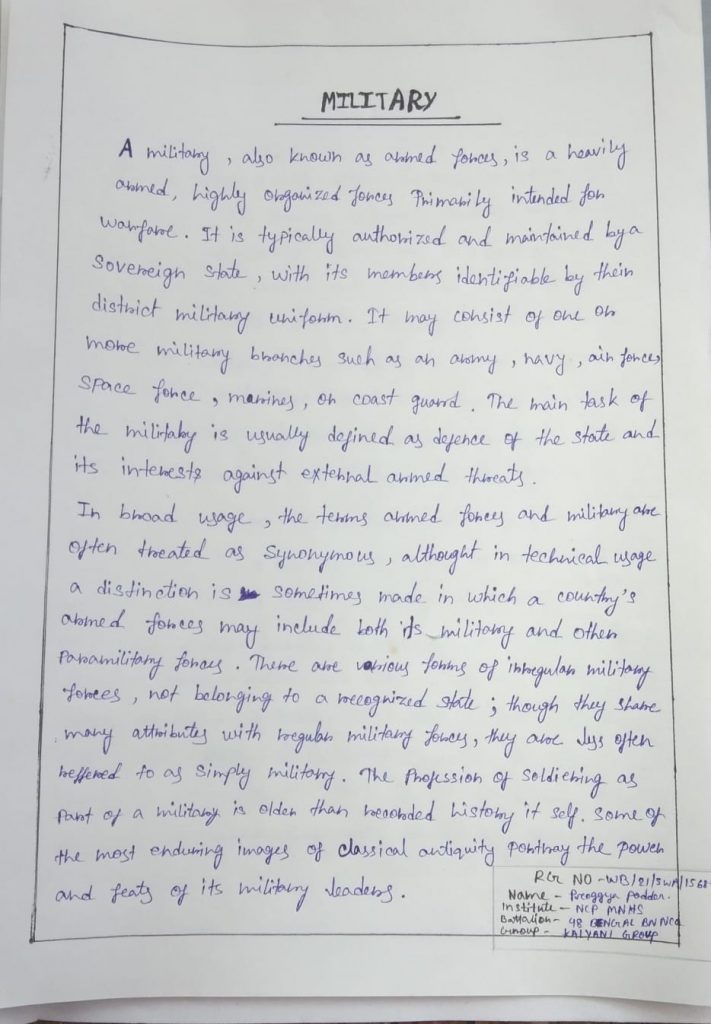 MILITARY
A military, also known as armed forces, is a heavily
armed, highly organized forces Primarily intended for
warfare. It is typically authorized and maintained by a
Sovereign state, with its members identifiable by their
district military uniform. It may consist of one or
more military branches such as an army, navy, air forces,
Space force, marines, or coast guard. The main task of
the military is usually defined as defence of the state and
its interests against external armed threats.
In broad usage, the terms armed forces and military are
often treated as Synonymous, althought in technical usage
a distinction is sometimes made in which a country's
armed forces may include both its military and other
Paramilitary forces. There are various forms of irregular military
forces, not belonging to a recognized state; though they share
many attributes with regular military forces, they are less often
reffered to as Simply military. The Profession of Soldiering as
Part of a military is older than recorded history it self. Some of
the most enduring images of classical antiquity portray the power
and feats of its military leaders.
RG NO - WB/21/SWA/1568
Name - Proggya Podder.
Institute - NCP MNHS
Battalion - 48 BENGAL BN NCC
Group - KALYANI GROUP